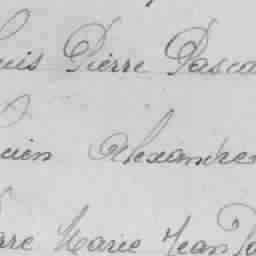 uis Pierre Pasca
cien Alexandre
Marie Jean